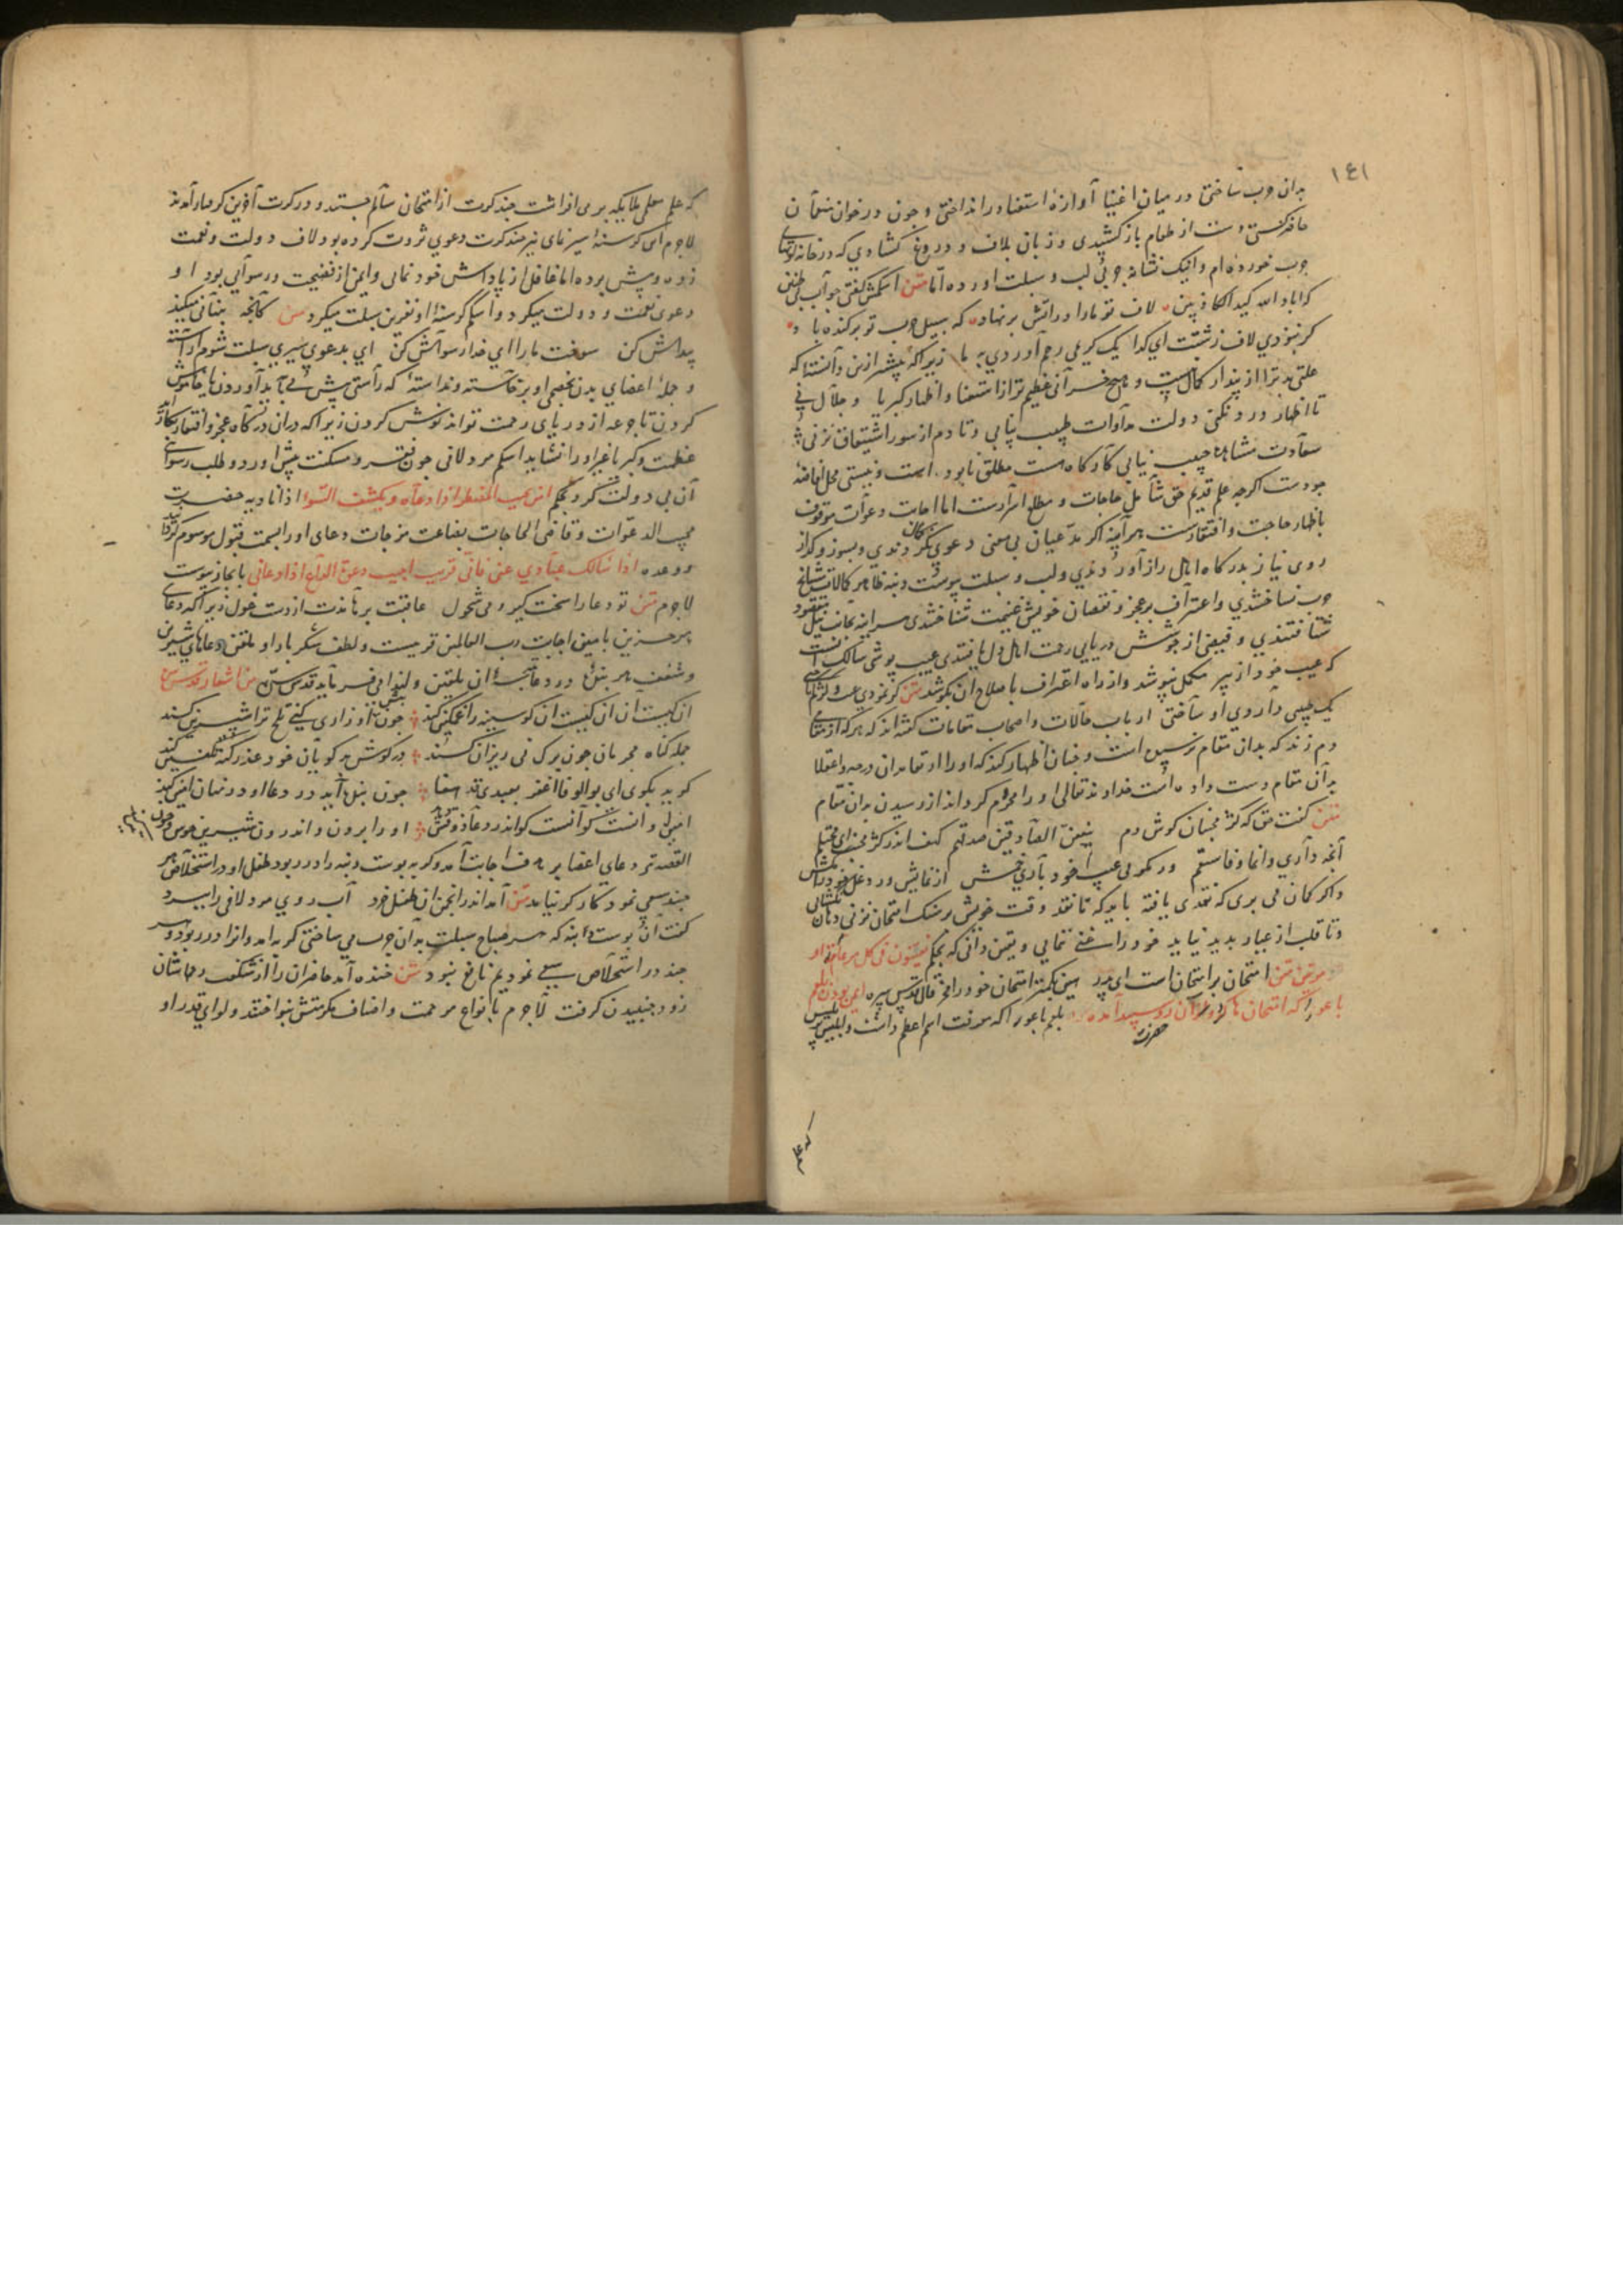 ١٤١
بدان چرب ساختی در میان اغنیا آوازهٔ استغنا در انداختی و جون در خوان نعمتان
حاضر دست از طعام باز کشیدی و زبان بلاف و دروغ کشادی که در خانه لوتهای
جرب خورده‌ام و اینک نشانهٔ جربی لب و سبلت اورده اما متن اشکمش کفتی جواب بی طنین
که اباد الله کید الکاذبین لاف تو مارا در اتش بر نهاد که سبیل جرب تو برکنده باد
کر نبودی لاف زشتت ای کدا یک کریمی رحم آوردی بما زیرا که پیشتر ازین دانسته که
علتی بدتر از پندار کمال نیست و هیچ خسرانی عظیم‌تر از استغنا و اظهار کبریا و جلال نی
تا اظهار درد نکنی دولت مداوات طبیب نیابی و تا دم از سوز اشتیاق نزنی
سعادت مشاهدهٔ حبیب نیابی کار کاه هست مطلق نابود است و نیستی محل افاضهٔ
جودست اکرجه علم قدیم حق شامل حاجات و مطلع اسرارست اما اجابت دعوات موقوف
باظهار حاجت و افتقارست هر آینه اکر مدعیان بی معنی دعوی نکردندی و بسوز و کداز
روی نیاز بدرکاه اهل راز آوردندی و لب و سبلت بپوست دنبه ظاهر کالات مشایخ
جرب نساختندی و اعتراف بعجز و نقصان خویش غنیمت شناختندی هر اینه بجانب نیل مقصود
شتافتندی و فیضی از جوشش دریای رحمت اهل دل یافتندی عیب پوشی سالک آنست
که عیب خود از پیر مکمل نپوشد و از راه اعتراف باصلاح ان بکوشد متن کر نمودی عیب و کژ کم باختی
یک طبیبی داروی او ساختی ارباب حالات و اصحاب مقامات کفته‌اند که هر که از مقامی
دم زند که بدان مقام نرسیده است و جنان اظهار کند که او را از مقامدان درجه و اعتلا
بدان مقام دست داده است خداوند تعالی او را محروم کرداند از رسیدن بدان مقام
متن کفت حق که کژ مجنبان کوش و دم ینفعن الصادقین صدقهم کهف اندر کژ مخسب ای محتلم
آنچه داری وانما و فاستقم ور نکویی عیب خود باری خمش از نمایش وز دغل خود را مکش
و اکر کمان می بری که نقدی یافته باید که تا نقد وقت خویش بر سنک امتحان نزنی دهان نکشایی
و تا قلب از عیار بدید نیاید خود را سخن نمایی و یقین دانی که بحکم یفتنون فی کل عام مرة او
مرتین متن امتحان بر امتحان است ای پدر هین بکمتر امتحان خود را مخر قال قدس سره ایمن بودن بلعم
باعور که امتحان‌ها کرد حضرت و از آن رو سپید آمده بلعم باعور اکه معرفت اسم اعظم داشت و ابلیس پر تلبیس
که علم
که علم معلمی ملایکه بر می افراشت جند کرت از امتحان سالم جستند و در کرت آخرین کرفتار آمدند
لاجرم آن کرسنه اسیر نمای نیز جند کرت دعوی ثروت کرده بود و لاف دولت و نعمت
زده و پیش برده اما غافل از پاداش خود نمایی و ایمن از فضیحت و رسوایی بود او
دعوی نعمت و دولت میکرد و اشکم کرسنهٔ او نفرین سبلت میکرد متن کانچه پنهان میکند
پیداش کن سوخت ما را ای خدا رسواش کن ای بدعوی سیری سبلت شوم آراسته
و جملهٔ اعضای بدن بخصمی او برخاسته و ندانسته که راستی پیش می باید آوردن یا خاموشی
کردن تا جرعه از دریای رحمت تواند نوش کردن زیرا که دران درکاه عجز و افتقار بکار آید
عظمت و کبر یا غیر او را نشاید اشکم مرد لافی جون فقر و مسکنت پیش اورد و طلب رسوایی
آن بی دولت کرد بحکم امن یجیب المضطر اذا دعاه و یکشف السوء اذا نادیه حضرت
مجیب الدعوات و قاضی الحاجات بضاعت مزجات دعای او را بسمت قبول موسوم کردانید
و وعده اذا سالک عبادی عنی فانی قریب اجیب دعوة الداع اذا دعانی بانجاز پیوست
لاجرم متن تو دعا را سخت کیر و می شخول عاقبت برهاندت از دست غول زیرا که دعای
هر حزین بامین اجابت رب العالمین قرینست و لطف شکر بار او ملقن دعاهای شیرین
و شغف هر بنده در دعا نتیجهٔ ان تلقین و لهذا می فرماید قدس سره من اشعار قدس سره
ان کیست ان ان کیست ان کو سینه را غمکین کند جون پیش او زاری کنی تلخ ترا شیرین کند
جمله کناه مجرمان جون برک دی ریزان کند در کوش بد کویان خود عذر کنه تلقین کند
کوید بکوی ای بوالوفا اغفر بعبدی قد هفا جون بنده آید در دعا او در نهان آمین کند
آمین او انست کو اندر دعا ذوقش دهد او را برون و اندرون شیرین و خوش جون تین کند
القصه تیر دعای اعضا بر هدف اجابت آمد و کربه پوست دنبه را در ربود طفل او در استخلاص هر
جند سعی نمود کارکر نیامد متن آمد اندر انجمن ان طفل خرد آب روی مرد لافی را ببرد
کفت آن پوست دنبه که هر صباح سبلت بدآن جرب می ساختی کربه آمد و انرا در ربود و هر
جند در استخلاص سعی نمودیم نافع نبود متن خنده آمد حاضران را از شکفت رحمهاشان
زود جنبیدن کرفت لاجرم بانواع مرحمت و اصناف مکرمتش بنواختند و لوای قدر او